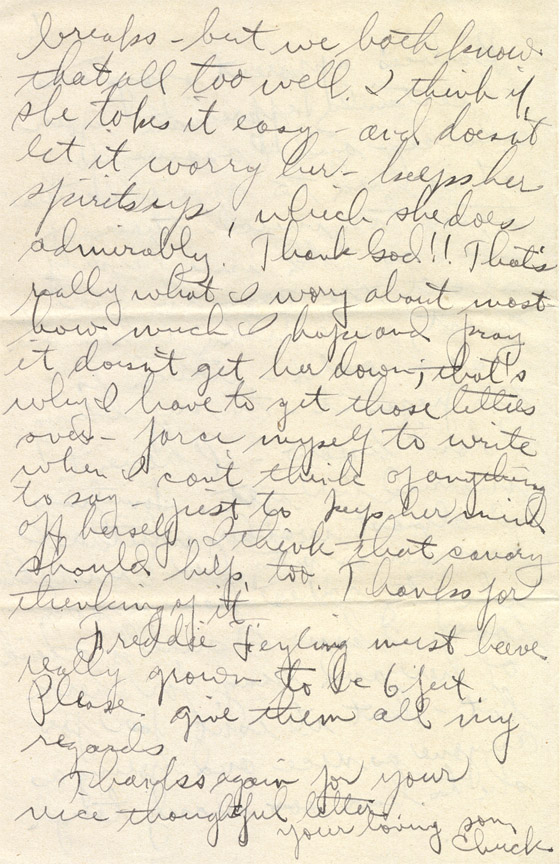 breaks - but we both know
that all too well. I think if
she takes it easy - and doesn't
let it worry her - keeps her
spirits up, which she does
admirably! Thank God!! That's
really what I worry about most
how much I hope and pray
it doesn't get her down; that's
why I have to get those letters
over - force myself to write
when I can't think of anything
to say - just to keep her mind
off herself. I think that canary
should help, too. Thanks for
thinking of it!
Freddie must have
really grown to be 6 feet.
Please give them all my
regards
Thanks again for your
nice thoughtful letter.
your loving son,
Chuck